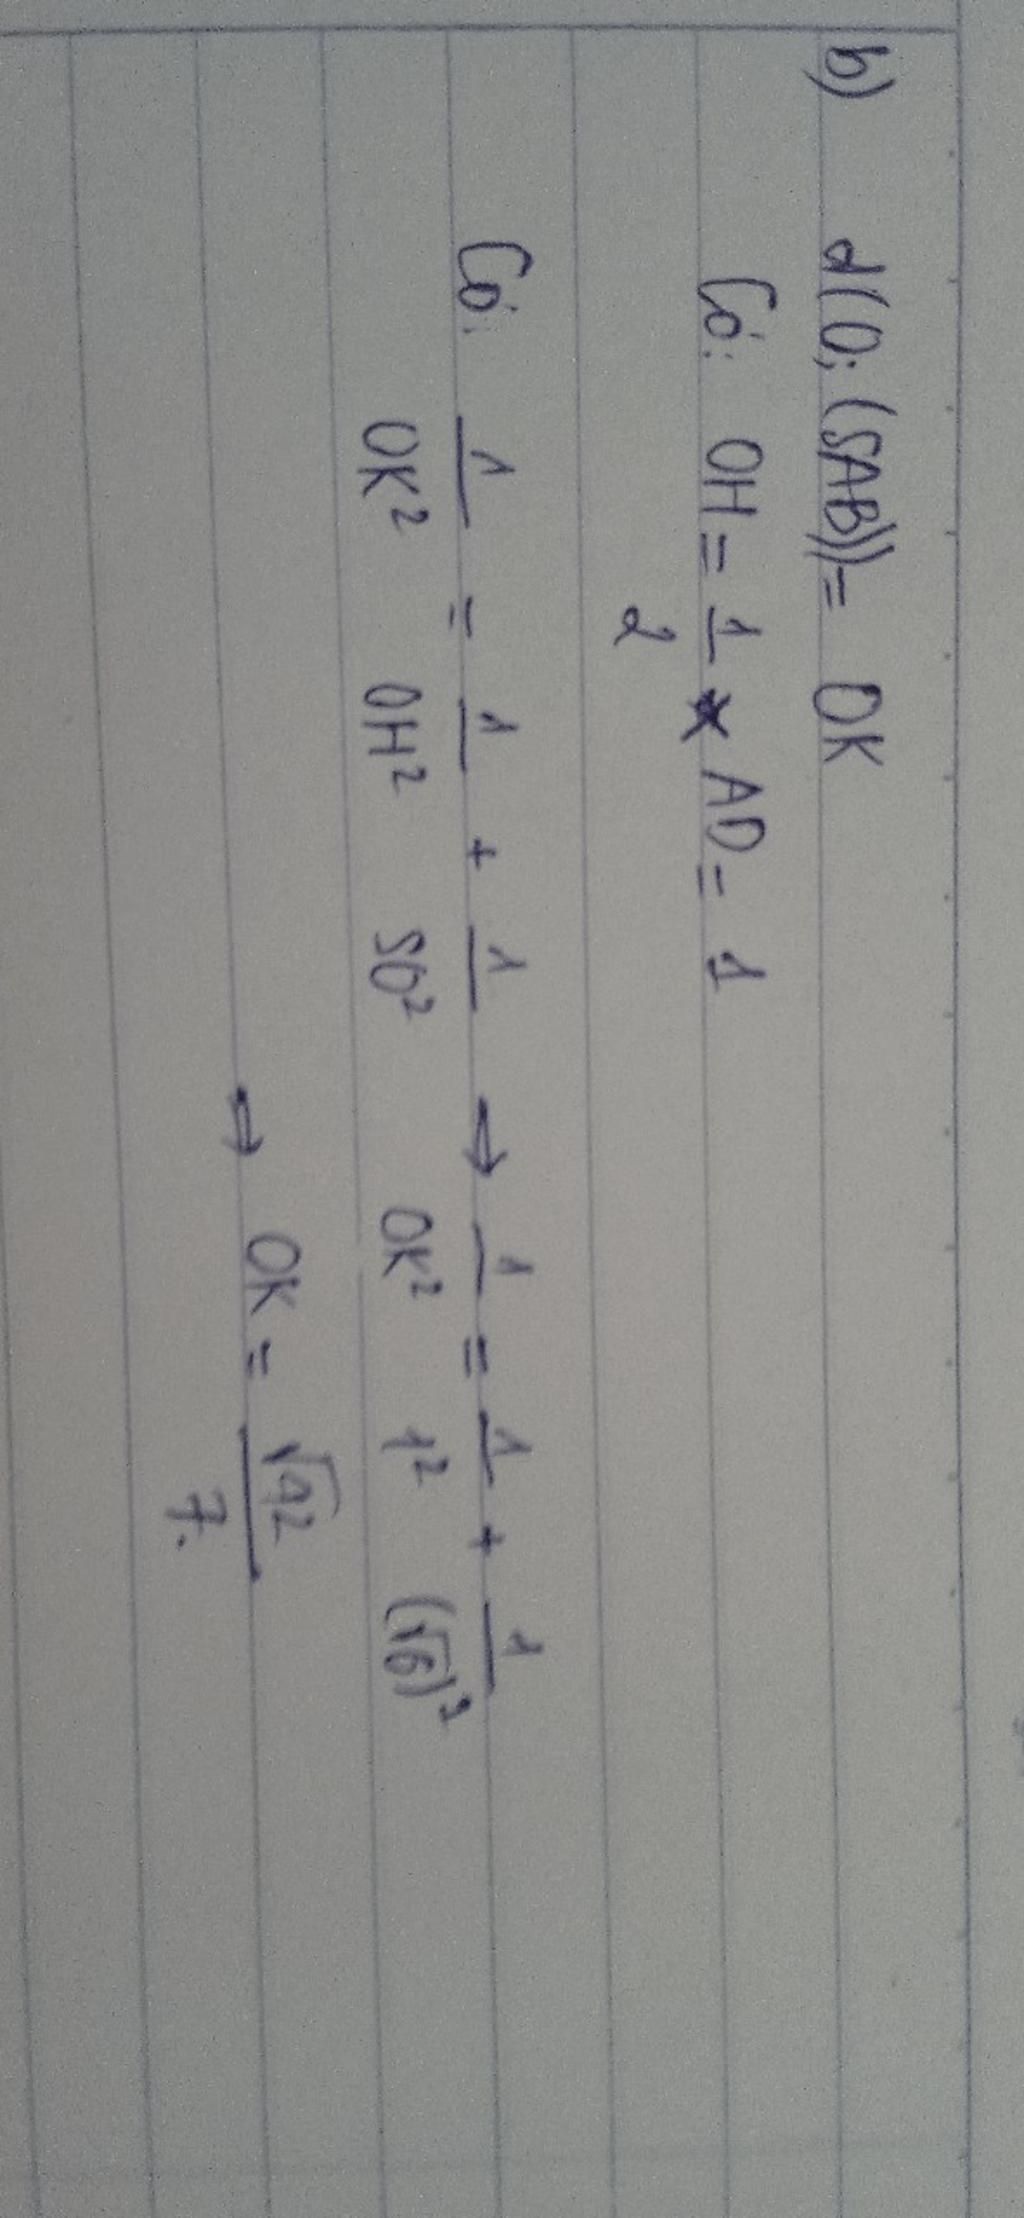 b) d(O; (SAB)) = OK
Có: OH = 1/2 x AD = 1
Có: 1/OK² = 1/OH² + 1/SO² → 1/OK² = 1/1² + 1/(√6)²
⇒ OK = √42/7.